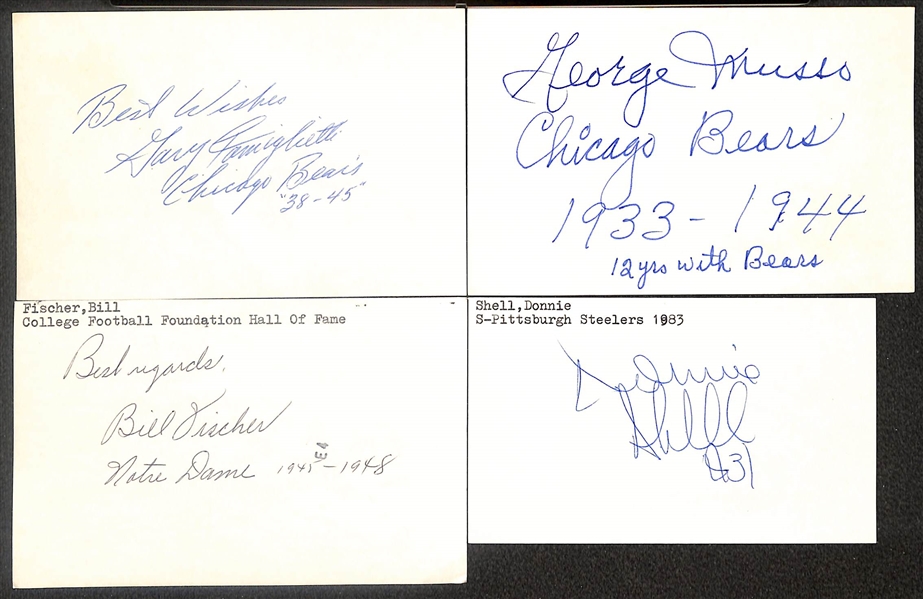 Best Wishes
Gary Famiglietti
Chicago Bears
"38-45"
George Musso
Chicago Bears
1933 - 1944
12 yrs with Bears
Fischer,Bill
College Football Foundation Hall Of Fame
Best regards,
Bill Fischer
Notre Dame 1945-1948
Shell,Donnie
S-Pittsburgh Steelers 1983
Donnie
Shell
#31